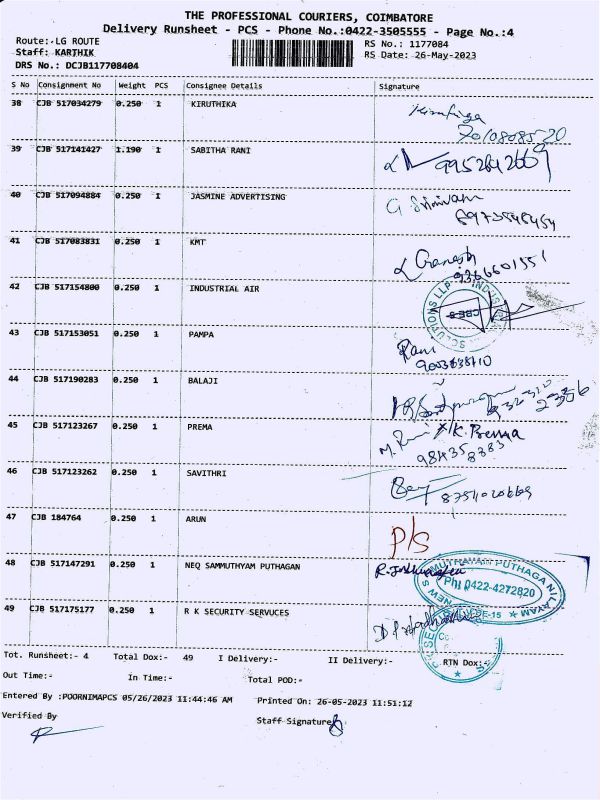 THE PROFESSIONAL COURIERS, COIMBATORE
Delivery Runsheet - PCS - Phone No.:0422-3505555 - Page No.:4
Route:- LG ROUTE
RS No.: 1177084
Staff: KARTHIK
RS Date: 26-May-2023
DRS No.: DCJB117708404
S No Consignment No Weight PCS Consignee Details Signature
38 CJB 517034279 0.250 1 KIRUTHIKA
39 CJB 517141427 1.190 1 SABITHA RANI
9952642669
40 CJB 517094884 0.250 1 JASMINE ADVERTISING
G Srinivasan
8973548454
41 CJB 517083831 0.250 1 KMT
Ganesh
9366601551
42 CJB 517154800 0.250 1 INDUSTRIAL AIR
SOLUTIONS LLP
43 CJB 517153051 0.250 1 PAMPA
Rani
44 CJB 517190283 0.250 1 BALAJI
45 CJB 517123267 0.250 1 PREMA
K. Prema
46 CJB 517123262 0.250 1 SAVITHRI
47 CJB 184764 0.250 1 ARUN
P/S
48 CJB 517147291 0.250 1 NEQ SAMMUTHYAM PUTHAGAN
PUTHAGA NILAYAM
Ph: 0422-4272820
49 CJB 517175177 0.250 1 R K SECURITY SERVUCES
Tot. Runsheet:- 4 Total Dox:- 49 I Delivery:- II Delivery:- RTN Dox:-
Out Time:- In Time:- Total POD:-
Entered By :POORNIMAPCS 05/26/2023 11:44:46 AM Printed On: 26-05-2023 11:51:12
Verified By
Staff Signature